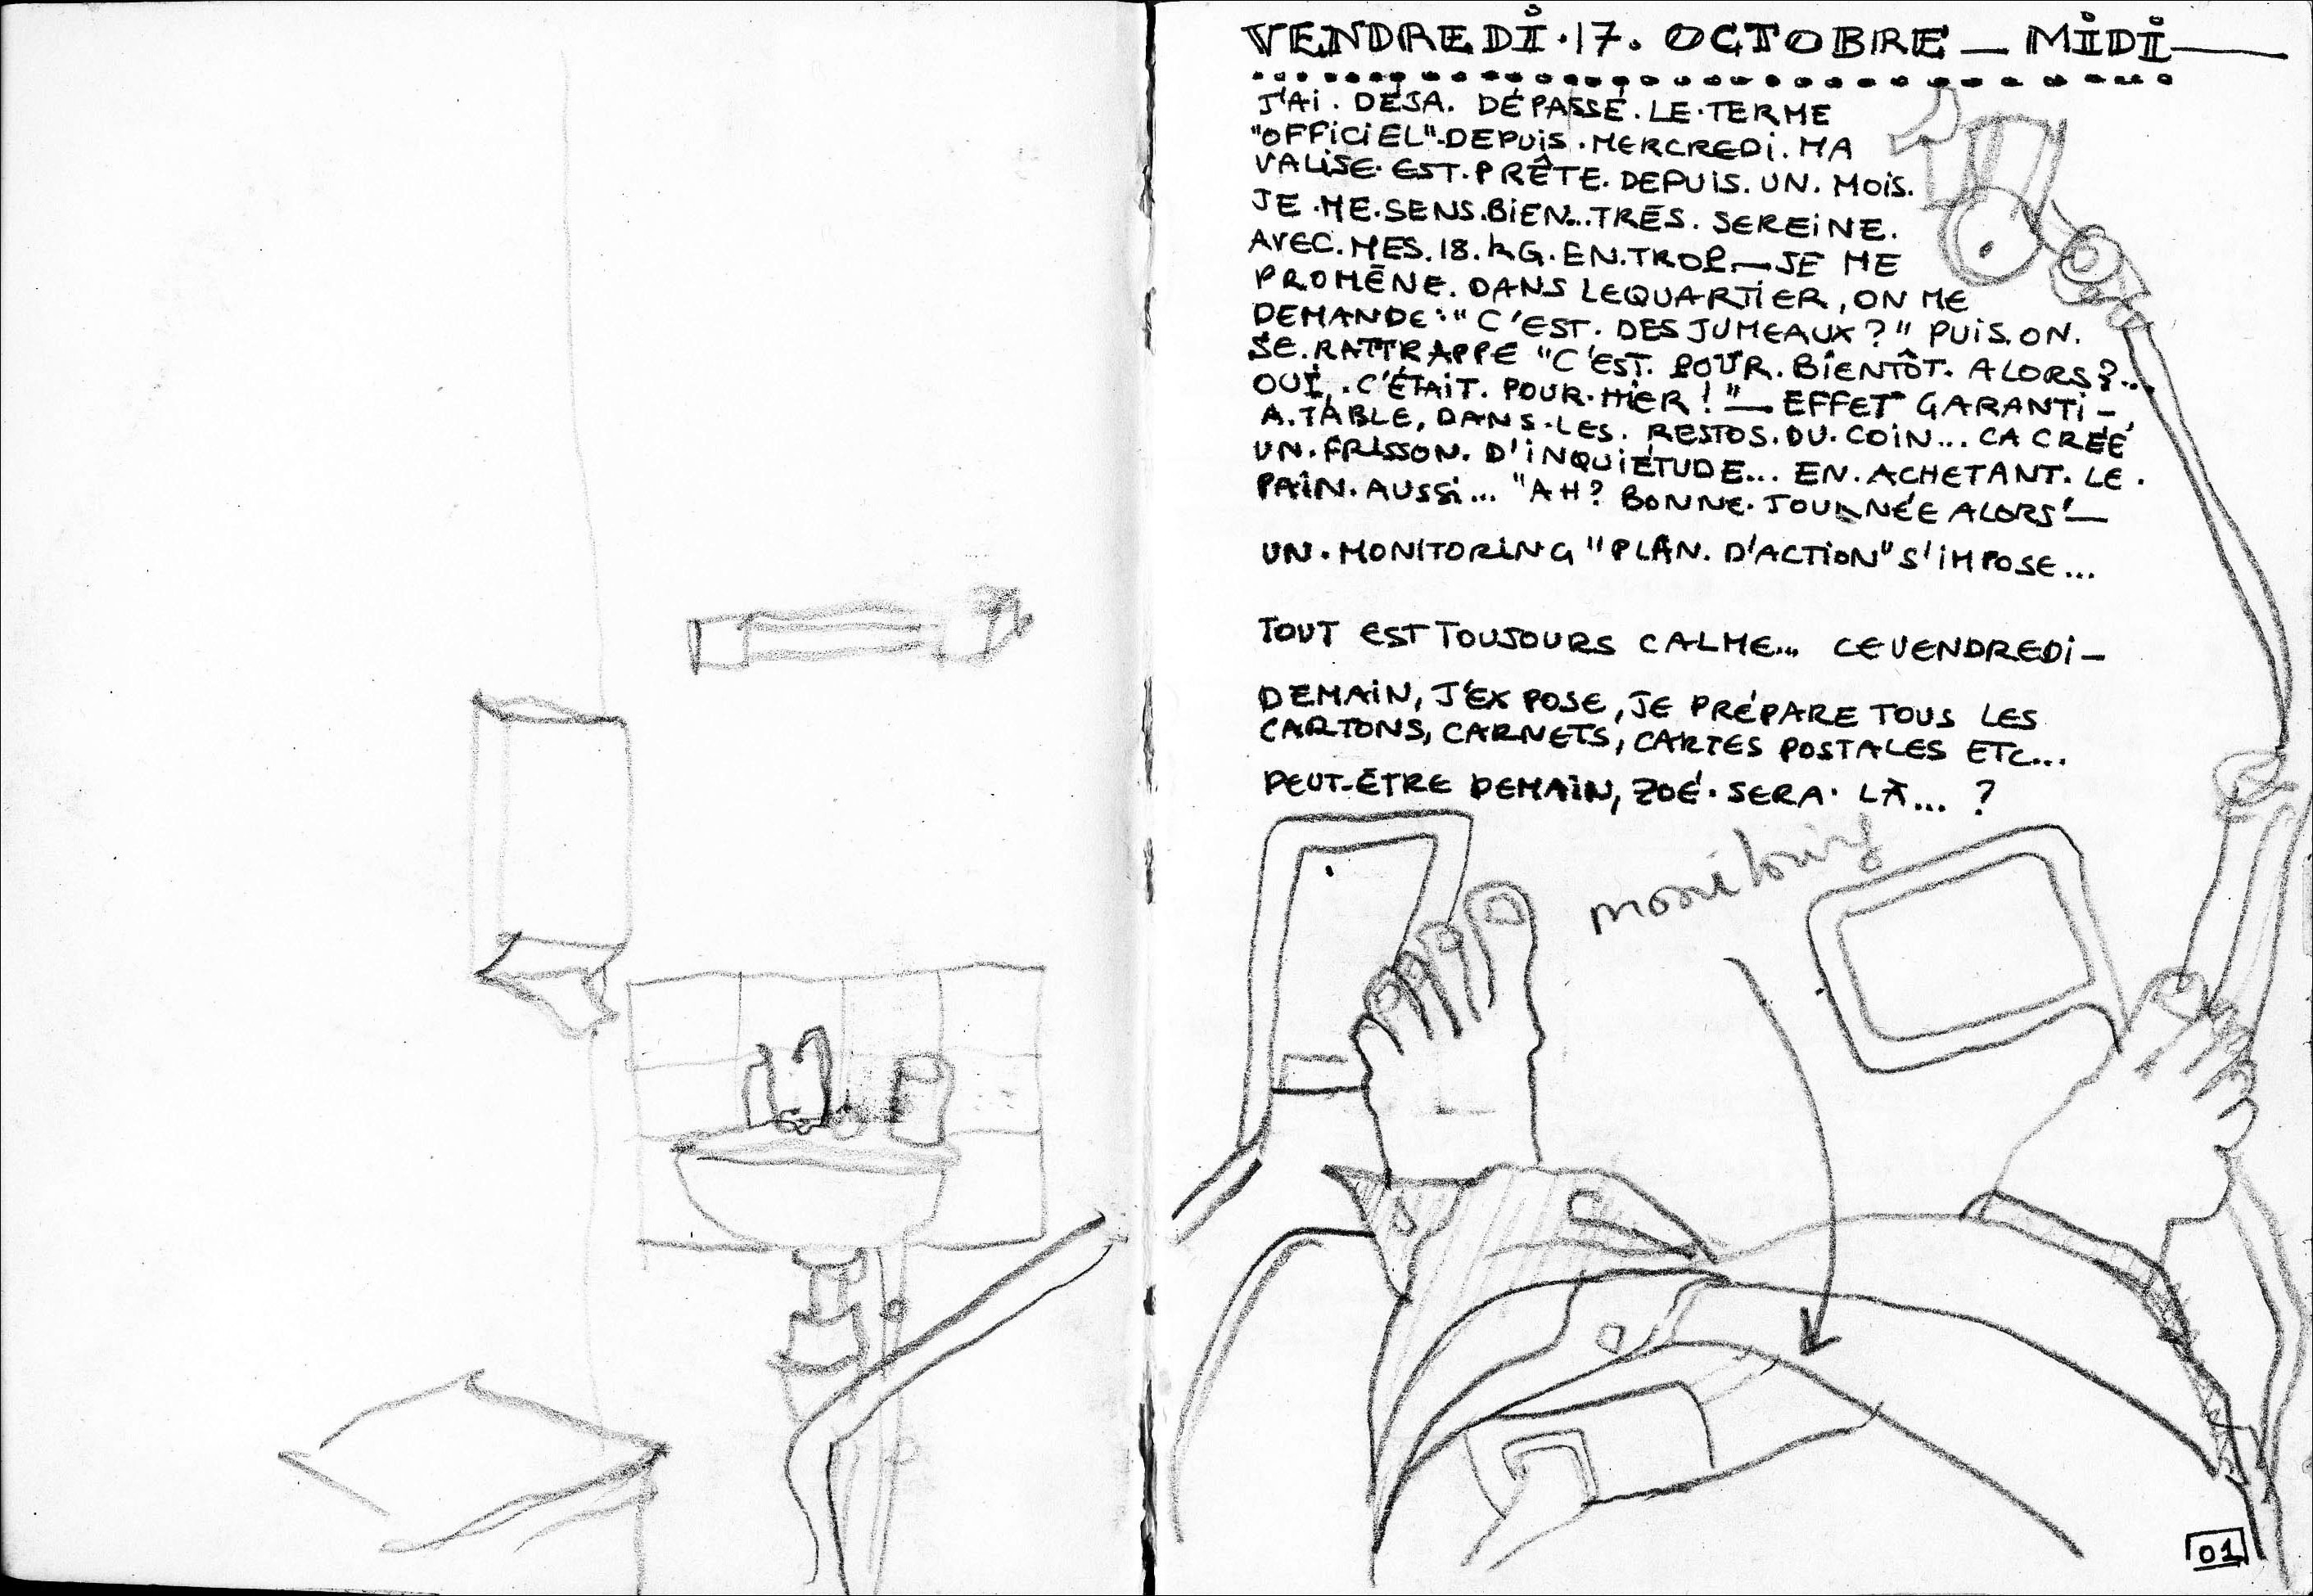 VENDREDI.17. OCTOBRE _ MIDI
J'AI. DÉJA. DÉPASSÉ. LE.TERME
"OFFICIEL".DEPUIS.MERCREDI. MA
VALISE.EST.PRÊTE. DEPUIS. UN. MOIS.
JE.ME.SENS.BIEN...TRÈS. SEREINE.
AVEC.MES.18.KG.EN.TROP_JE ME
PROMÈNE. DANS LEQUARTIER, ON ME
DEMANDE:"C'EST. DES JUMEAUX?" PUIS.ON.
SE.RATTRAPPE "C'EST. POUR. BIENTÔT. ALORS?...
OUI,.C'ÉTAIT. POUR.HIER!"_ EFFET GARANTI_
A.TABLE, DANS.LES. RESTOS.DU.COIN... CA CRÉE
UN.FRISSON. D'INQUIÉTUDE... EN.ACHETANT. LE.
PAIN. AUSSI... "AH? BONNE.JOURNÉE ALORS'_
UN.MONITORING "PLAN. D'ACTION" S'IMPOSE...
TOUT EST TOUJOURS CALME... CEVENDREDI_
DEMAIN, J'EXPOSE, JE PRÉPARE TOUS LES
CARTONS, CARNETS, CARTES POSTALES ETC...
PEUT-ÊTRE DEMAIN, ZOÉ. SERA. LÀ... ?
monitoring
01